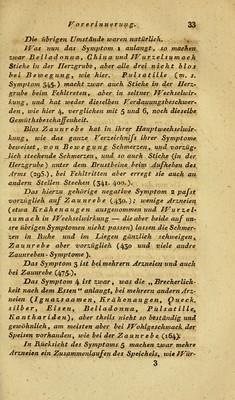 Vorerinnerung. 33
Die übrigen Umstände waren natürlich.
Was nun das Symptom 1 anlangt, so machen
zwar Belladonna, China und Wurzelsumach
Stiche in der Herzgrube, aber alle drei nicht blos
bei Bewegung, wie hier. Pulsatille (m. s.
Symptom 345.) macht zwar auch Stiche in der Herz-
grube beim Fehltreten, aber in seltner Wechselwir-
kung, und hat weder dieselben Verdauungsbeschwer-
den, wie hier 4, verglichen mit 5 und 6, noch dieselbe
Gemüthsbeschaffenheit.
Blos Zaunrebe hat in ihrer Hauptwechselwir-
kung, wie das ganze Verzeichniſs ihrer Symptome
beweiset, von Bewegung Schmerzen, und vorzüg-
lich stechende Schmerzen, und so auch Stiche (in der
Herzgrube) unter dem Brustbeine beim Aufheben des
Arms (295.), bei Fehltritten aber erregt sie auch an
andern Stellen Stechen (341. 400.).
Das hierzu gehörige negative Symptom 2 paſst
vorzüglich auf Zaunrebe (430.); wenige Arzneien
(etwa Krähenaugen ausgenommen und Wurzel-
sumach in Wechselwirkung — die aber beide auf un-
sre übrigen Symptomen nicht passen) lassen die Schmer-
zen in Ruhe und im Liegen gänzlich schweigen,
Zaunrebe aber vorzüglich (430 und viele andre
Zaunreben-Symptome).
Das Symptom 3 ist bei mehrern Arzneien und auch
bei Zaunrebe (475.),
Das Symptom 4 ist zwar, was die „Brecherlich-
keit nach dem Essen" anlangt, bei mehrern andern Arz-
neien (Ignazsaamen, Krähenaugen, Queck-
silber, Eisen, Belladonna, Pulsatille,
Kanthariden), aber theils nicht so beständig und
gewöhnlich, am meisten aber bei Wohlgeschmack der
Speisen vorhanden, wie bei der Zaunrebe (164.)
In Rüksicht des Symptoms 5 machen zwar mehre
Arzneien ein Zusammenlaufen des Speichels, wie Wür-
3